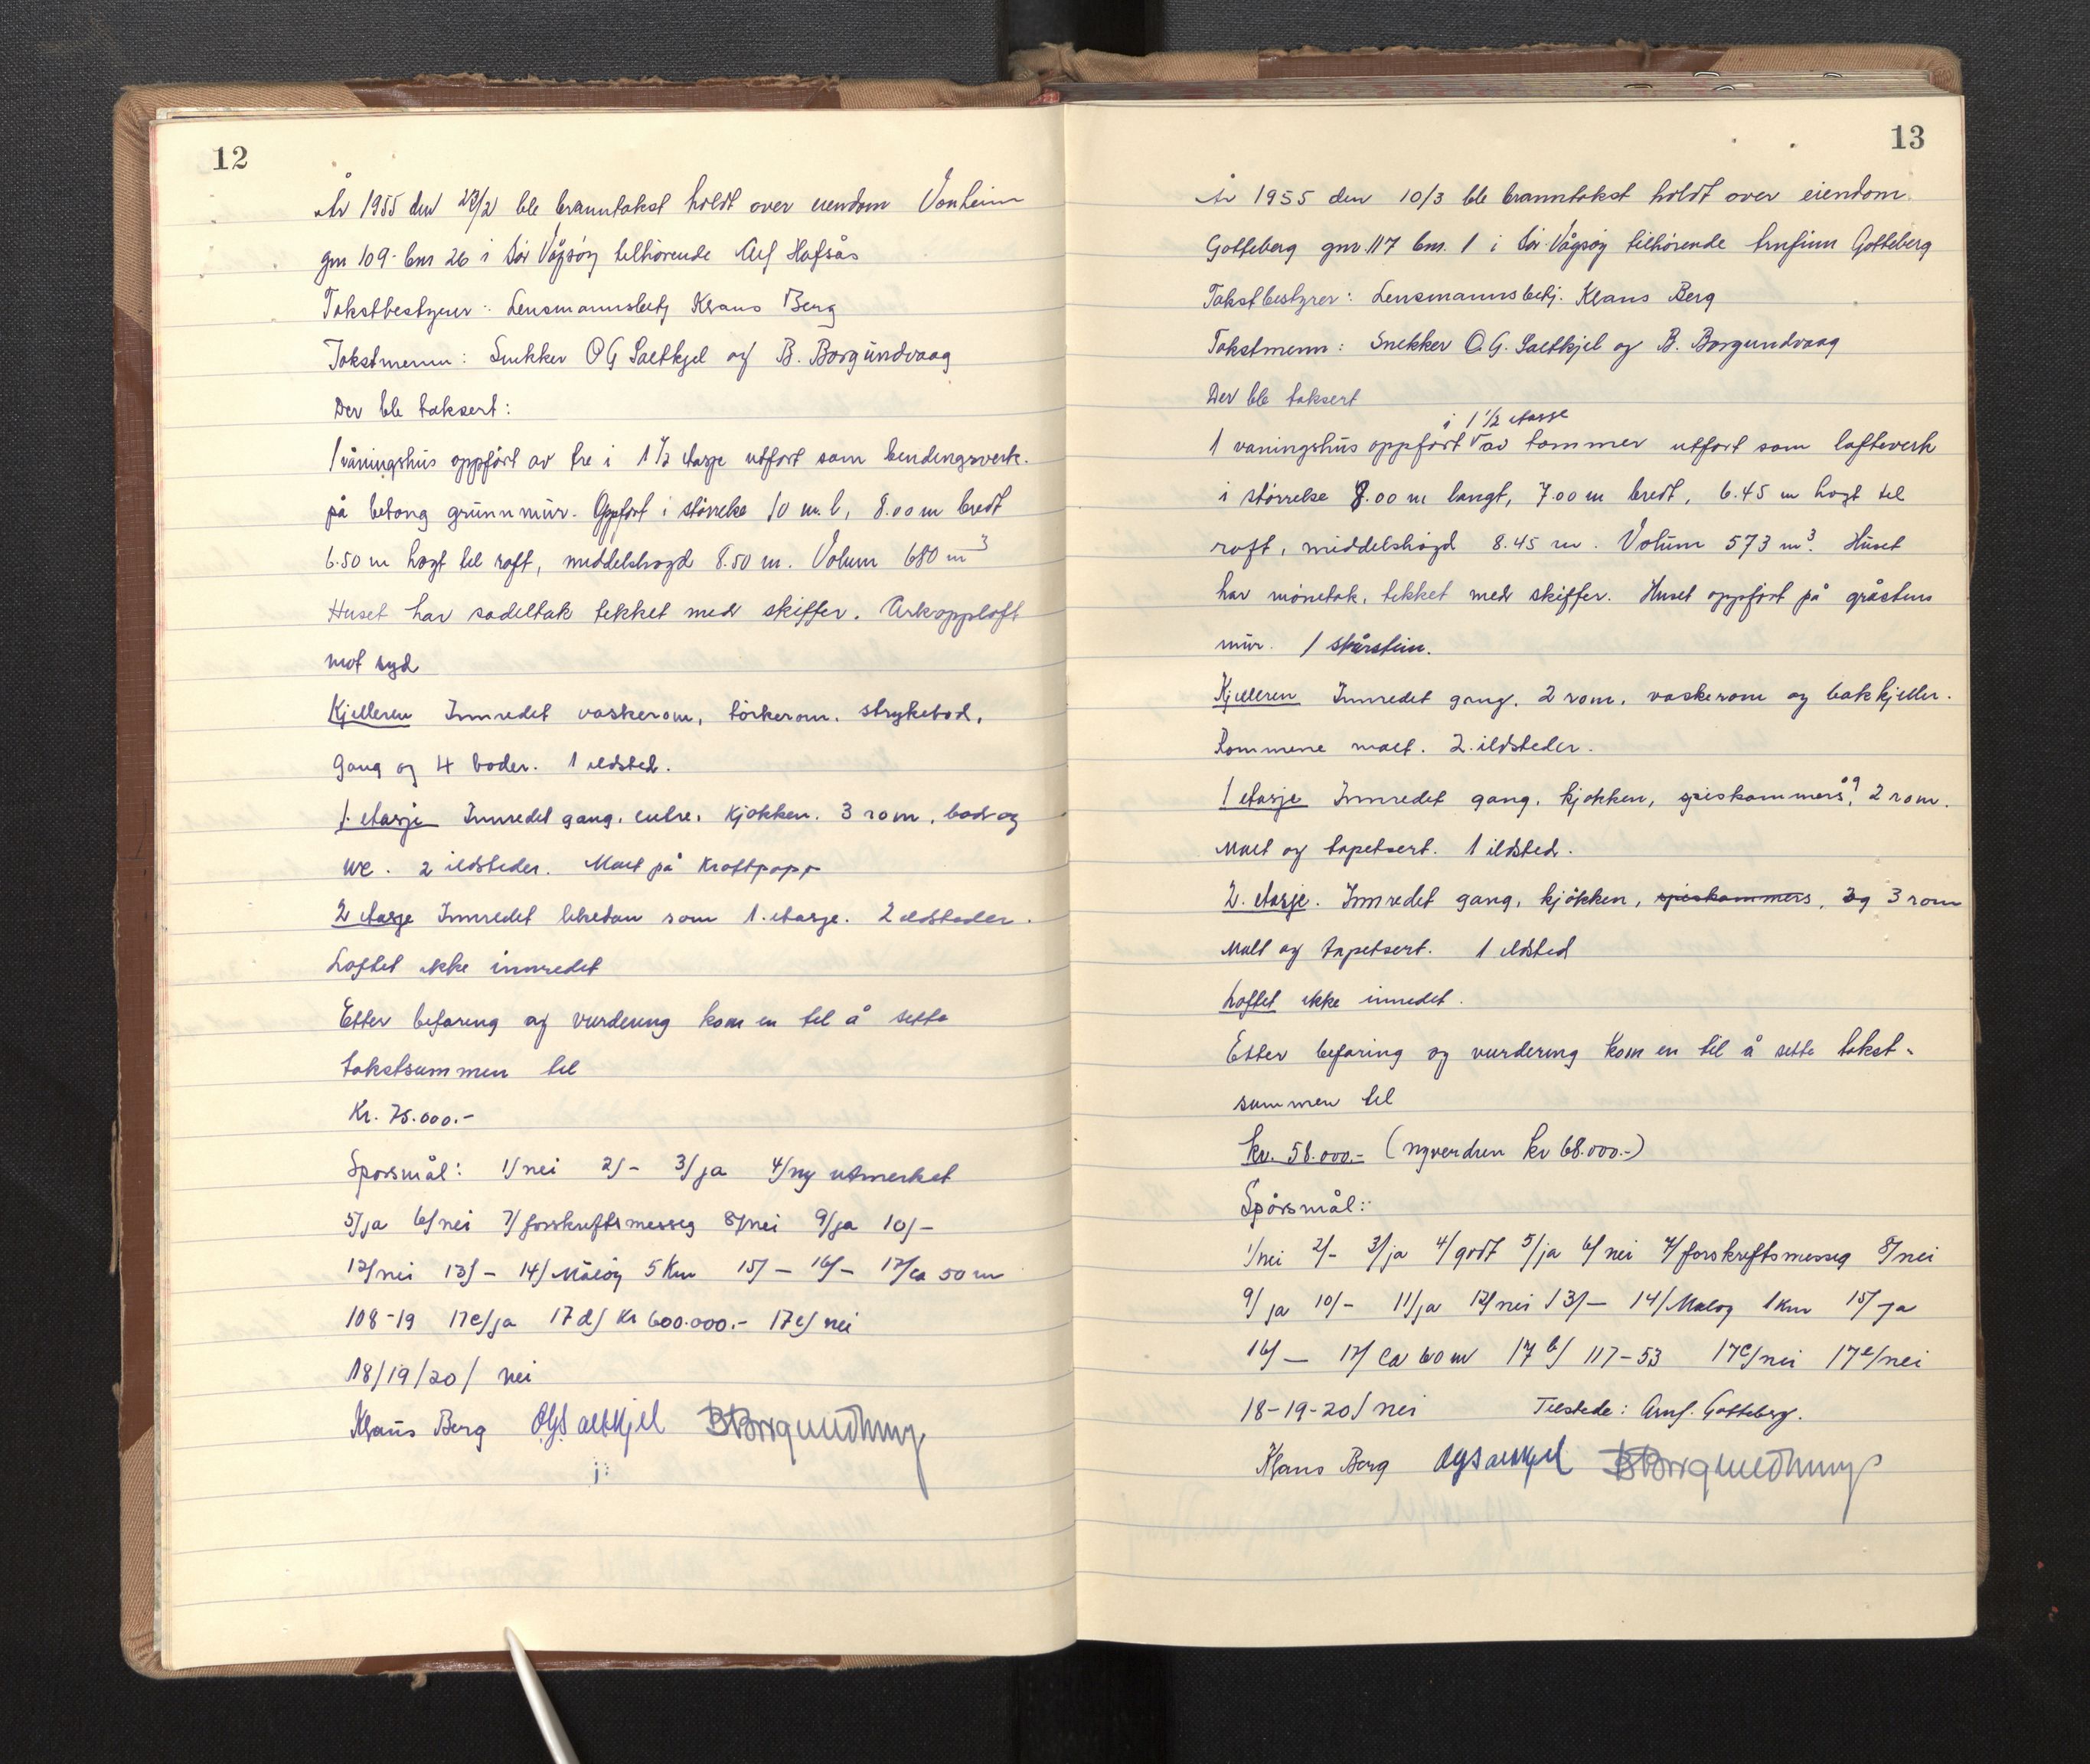 12
År 1955 den 23/2 ble branntakst holdt over eiendom Vonheim
gnr 109 - bnr 26 i Sør Vågsøy tilhørende Alf Hafsås
Takstbestyrer: Lensmannsbetj Klaus Berg
Takstmenn: Snekker O G Saltkjel og B. Borgundvaag
Der ble taksert:
1 våningshus oppført av tre i 1 1/2 etasje utført som bendingsverk.
på betong grunnmur. Oppført i størrelse 10 m. l, 8.00 m bredt
6.50 m høgt til raft, middelshøgd 8.50 m. Volum 680 m3
Huset har sadeltak tekket med skiffer. Arkoppløft
mot syd
Kjelleren Innredet vaskerom, tørkerom, strykebod,
gang og 4 boder. 1 ildsted.
1. etasje Innredet gang, entre, kjøkken. 3 rom, bod og
WC. 2 ildsteder. Malt på kraftpapp
2 etasje Innredet likedan som 1. etasje. 2 ildsteder.
Loftet ikke innredet
Etter befaring og vurdering kom en til å sette
takstsummen til
Kr. 75.000.-
Spørsmål: 1/ nei 2/ - 3/ ja 4/ ny utmerket
5/ ja 6/ nei 7/ forskriftsmessig 8/ nei 9/ ja 10/ -
12/ nei 13/ - 14/ Måløy 5 Km 15/ - 16/ - 17/ ca 50 m
108-19 17c/ ja 17 d/ kr 600.000.- 17e/ nei
18/19/20/ nei
Klaus Berg OGSaltkjel BBorgundvaag
13
År 1955 den 10/3 ble branntakst holdt over eiendom
Gotteberg gnr. 117 bnr. 1 i Sør-Vågsøy tilhørende Arnfinn Gotteberg
Takstbestyrer: Lensmannsbetj. Klaus Berg
Takstmenn: Snekker O.G. Saltkjel og B. Borgundvaag
Der ble taksert
i 1 1/2 etasje
1 våningshus oppført av tømmer utført som lafteverk
i størrelse 8.00 m langt, 7.00 m bredt, 6.45 m høgt til
raft, middelshøgd 8.45 m. Volum 573 m3. Huset
har mønetak, tekket med skiffer. Huset oppført på gråsteins
mur. 1 skårstein.
Kjelleren Innredet gang, 2 rom, vaskerom og bakkjeller.
Rommene malt. 2 ildsteder.
1 etasje Innredet gang, kjøkken, spiskammers, og 2 rom.
Malt og tapetsert. 1 ildsted.
2. etasje. Innredet gang, kjøkken, spiskammers, og 3 rom
Malt og tapetsert. 1 ildsted
Loftet ikke innredet.
Etter befaring og vurdering kom en til å sette takst-
summen til
kr. 58.000.- (nyverdien kr 68.000.-)
Spørsmål:
1/ nei 2/ - 3/ ja 4/ godt 5/ ja 6/ nei 7/ forskriftsmessig 8/ nei
9/ ja 10/ - 11/ ja 12/ nei 13/ - 14/ Måløy 1 km 15/ ja
16/ - 17/ ca 60 m 17 b/ 117-53 17c/ nei 17e/ nei
18-19-20/ nei Tilstede: Arnf. Gotteberg.
Klaus Berg OGSaltkjel BBorgundvaag